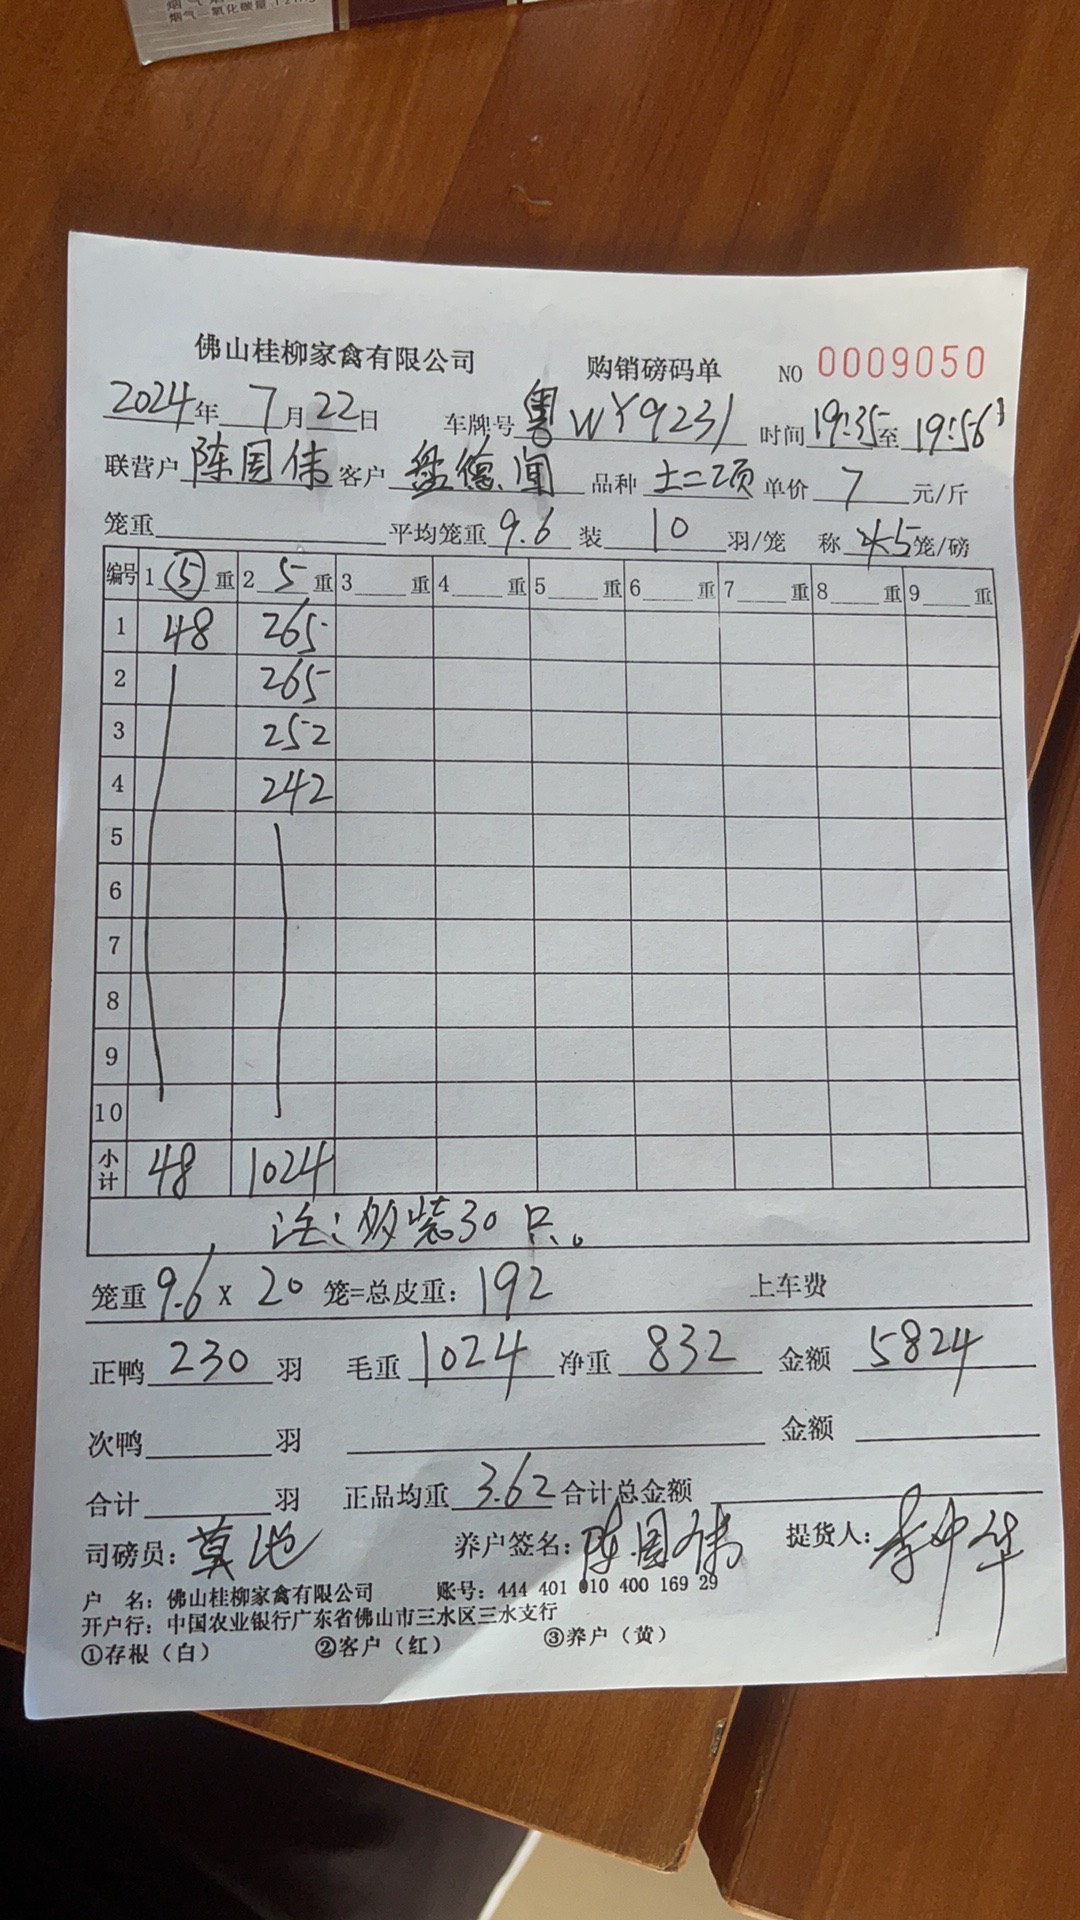 烟气一氧化碳量
佛山桂柳家禽有限公司 购销磅码单 NO 0009050
2024年7月22日 车牌号 粤WY9231 时间 19:35至19:56
联营户 陈国伟 客户 盘德闻 品种 土二项 单价 7 元/斤
笼重 平均笼重 9.6 装 10 羽/笼 称 5笼/磅
编号 1 5 重 2 5 重 3 重 4 重 5 重 6 重 7 重 8 重 9 重
1 48 265
2 265
3 252
4 242
5
6
7
8
9
10
小计 48 1024
注:多装30只。
笼重 9.6 x 20 笼=总皮重: 192 上车费
正鸭 230 羽 毛重 1024 净重 832 金额 5824
次鸭 羽 金额
合计 羽 正品均重 3.62 合计总金额
司磅员: 莫 养户签名: 陈国伟 提货人: 李中华
户 名: 佛山桂柳家禽有限公司 账号: 444 401 010 400 169 29
开户行: 中国农业银行广东省佛山市三水区三水支行
①存根(白) ②客户(红) ③养户(黄)